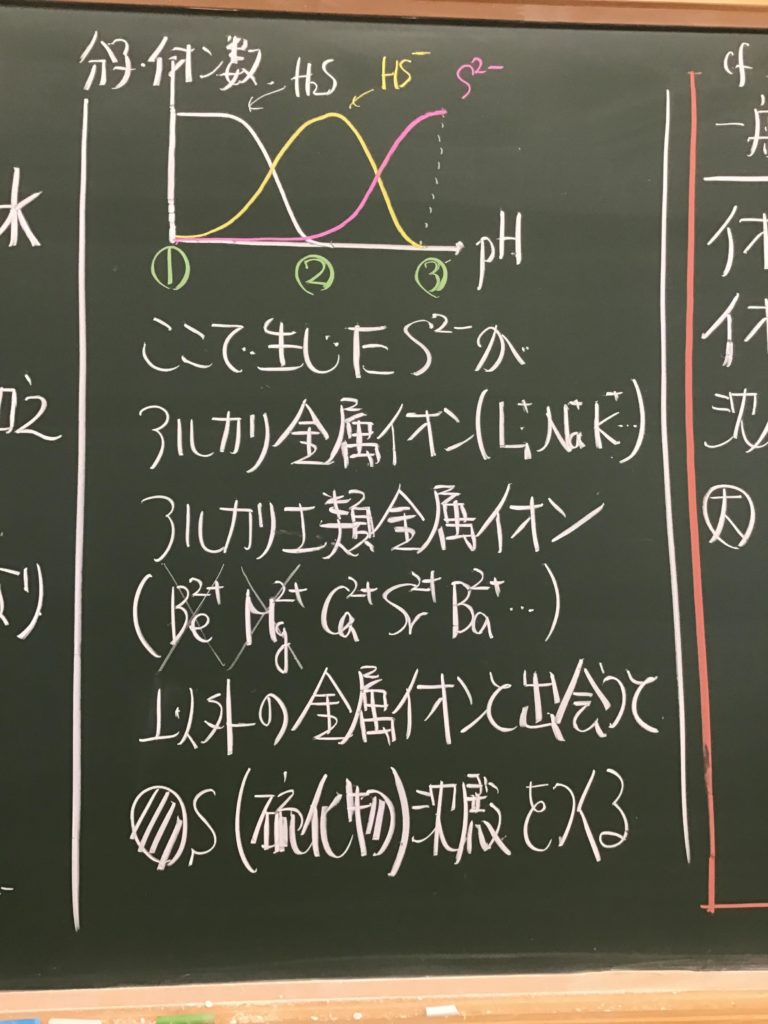 分子・イオン数
H₂S
HS⁻
S²⁻
pH
① ② ③
ここで生じたS²⁻が
アルカリ金属イオン(Li⁺ Na⁺ K⁺…)
アルカリ土類金属イオン
(Be²⁺ Mg²⁺ Ca²⁺ Sr²⁺ Ba²⁺…)
以外の金属イオンと出会うと
S(硫化物)沈殿をつくる
水
cf
イオ
イオ
沈
大